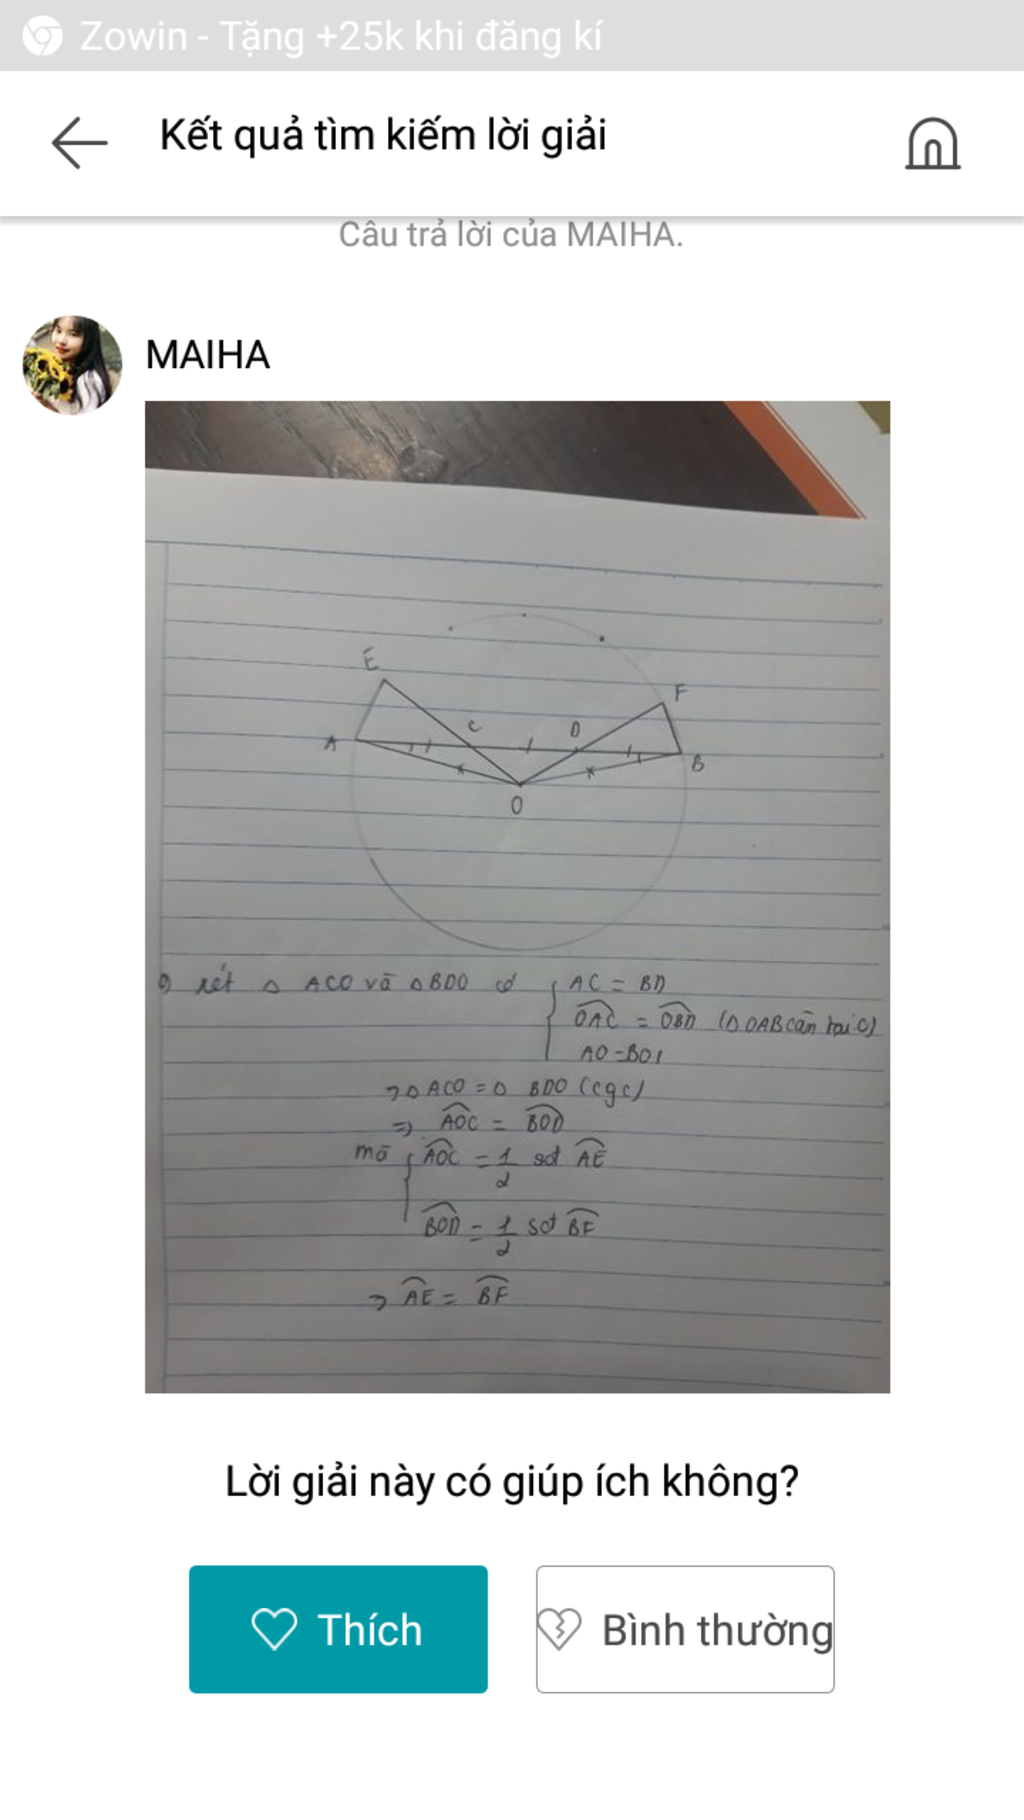 Zowin - Tặng +25k khi đăng kí
Kết quả tìm kiếm lời giải
Câu trả lời của MAIHA.
MAIHA
E
F
C
D
A
B
O
xét △ ACO và △BDO có { AC = BD
OAC = OBD (△OAB cân tại O)
AO = BO
=> △ ACO = △ BDO (cgc)
=> AOC = BOD
mà { AOC = 1/2 sđ AE
BOD = 1/2 sđ BF
=> AE = BF
Lời giải này có giúp ích không?
Thích
Bình thường